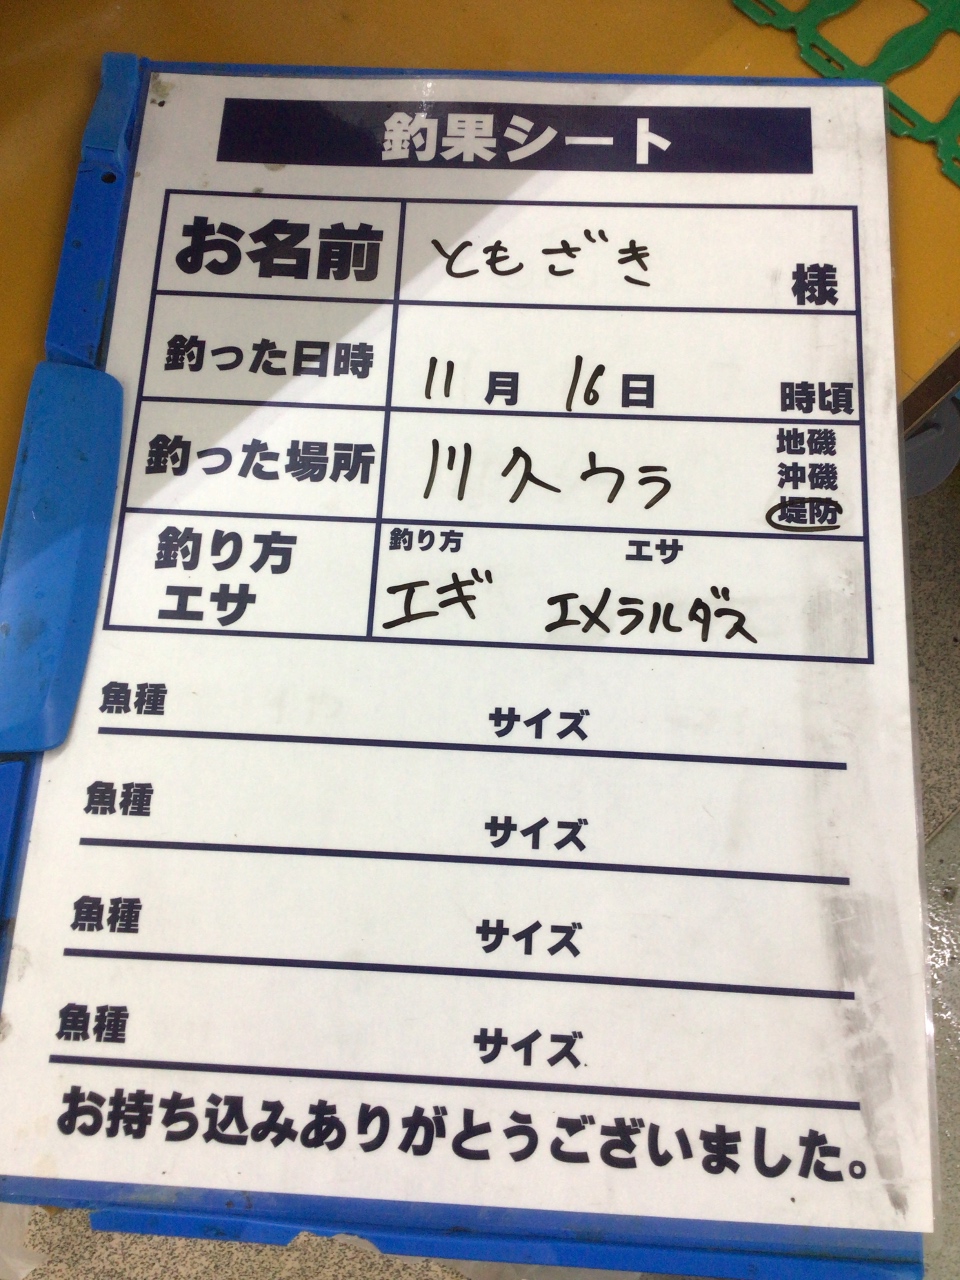 釣果シート
お名前 ともざき 様
釣った日時 11月 16日 時頃
釣った場所 川久ウラ 地磯
沖磯
堤防
釣り方 釣り方 エサ
エサ エギ エメラルダス
魚種 サイズ
魚種 サイズ
魚種 サイズ
魚種 サイズ
お持ち込みありがとうございました。